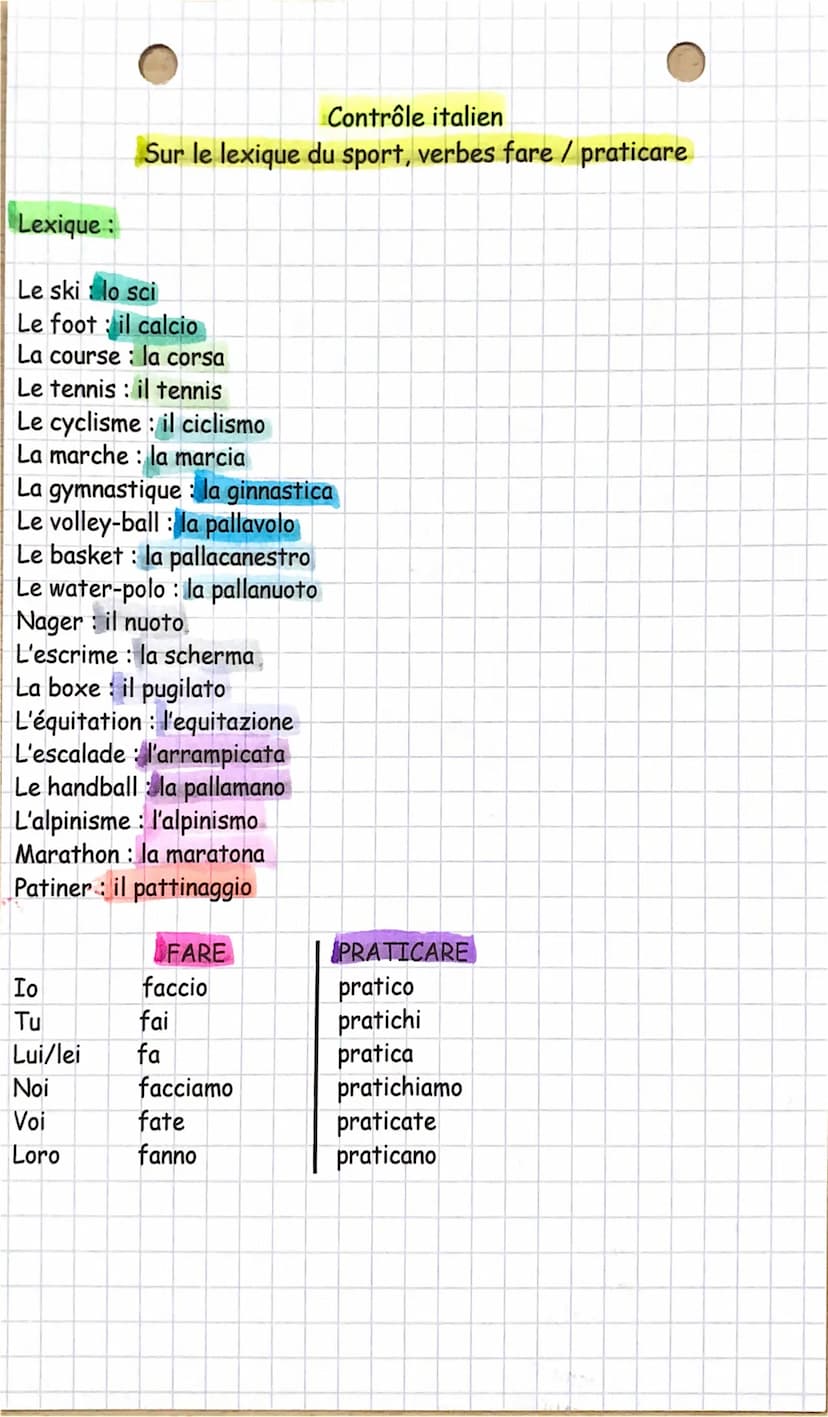 Contrôle italien
Sur le lexique du sport, verbes fare / praticare
Lexique :
Le ski : lo sci
Le foot : il calcio
La course : la corsa
Le tennis : il tennis
Le cyclisme : il ciclismo
La marche : la marcia
La gymnastique : la ginnastica
Le volley-ball : la pallavolo
Le basket : la pallacanestro
Le water-polo : la pallanuoto
Nager : il nuoto
L'escrime : la scherma
La boxe : il pugilato
L'équitation : l'equitazione
L'escalade : l'arrampicata
Le handball : la pallamano
L'alpinisme : l'alpinismo
Marathon : la maratona
Patiner : il pattinaggio
FARE PRATICARE
Io faccio pratico
Tu fai pratichi
Lui/lei fa pratica
Noi facciamo pratichiamo
Voi fate praticate
Loro fanno praticano